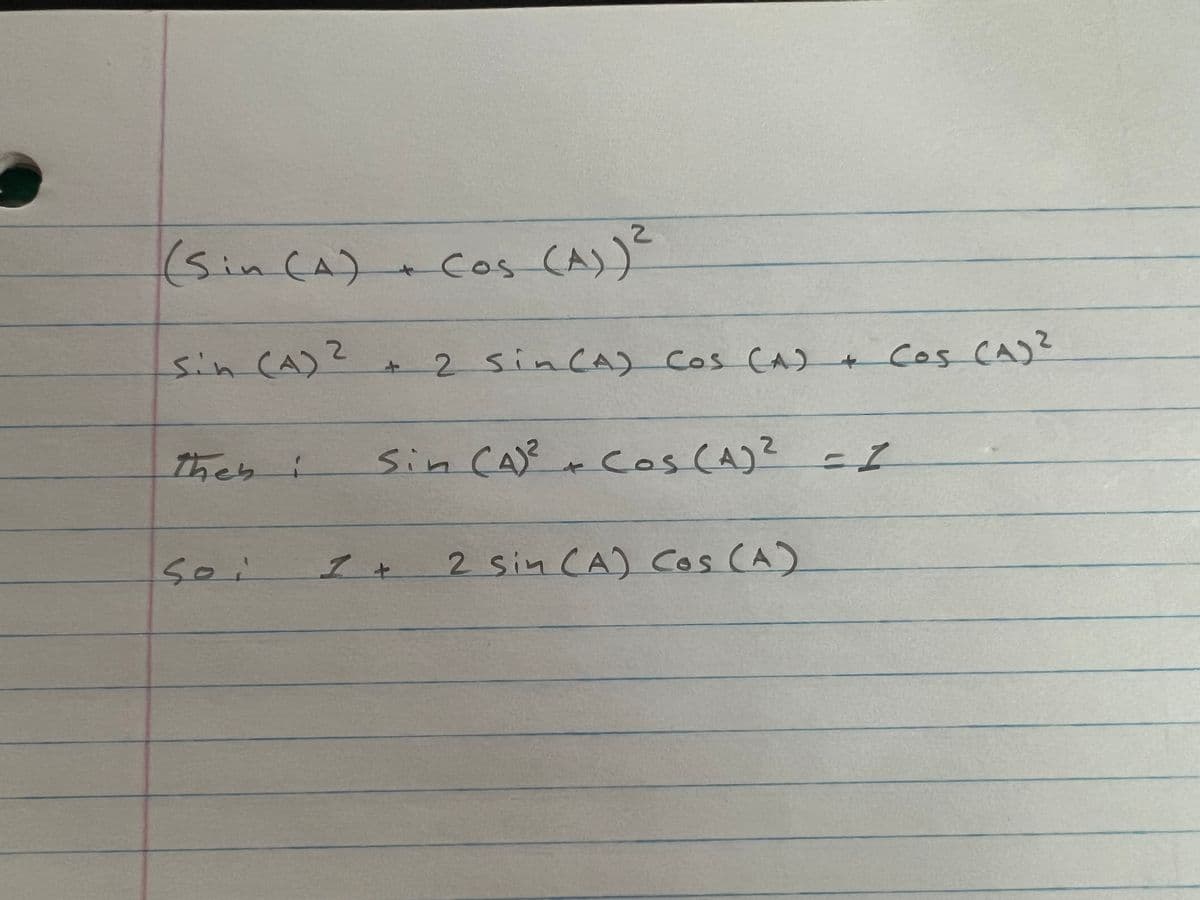 (Sin (A) + Cos (A))²
Sin (A)² + 2 Sin (A) Cos (A) + Cos (A)²
Then : Sin (A)² + Cos (A)² = 1
So : 1 + 2 Sin (A) Cos (A)